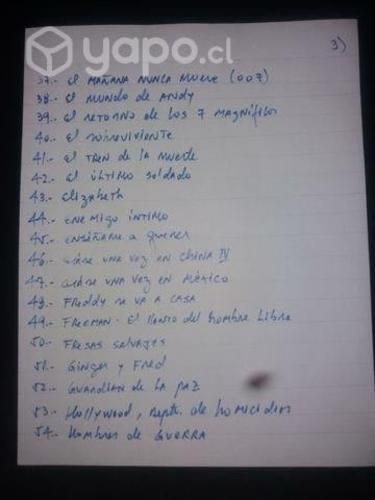 yapo.cl
3)
37.- El MAÑANA NUNCA MUERE (007)
38.- El MUNDO de ANDY
39.- El RETORNO de LOS 7 MAGNÍFICOS
40.- El SOBREVIVIENTE
41.- El TREN de LA MUERTE
42.- El ÚLTIMO SOLDADO
43.- Elizabeth
44.- ENEMIGO ÍNTIMO
45.- ENSÉÑAME a querer
46.- ERASE UNA VEZ EN CHINA IV
47.- ERASE UNA VEZ EN MÉXICO
48.- FREDDY se VA A CASA
49.- FREEMAN - El del Hombre Libre
50.- FRESAS SALVAJES
51.- GINGER y FRED
52.- GUARDIAN de LA PAZ
53.- Hollywood, Depto. de homicidios
54.- Hombres de GUERRA